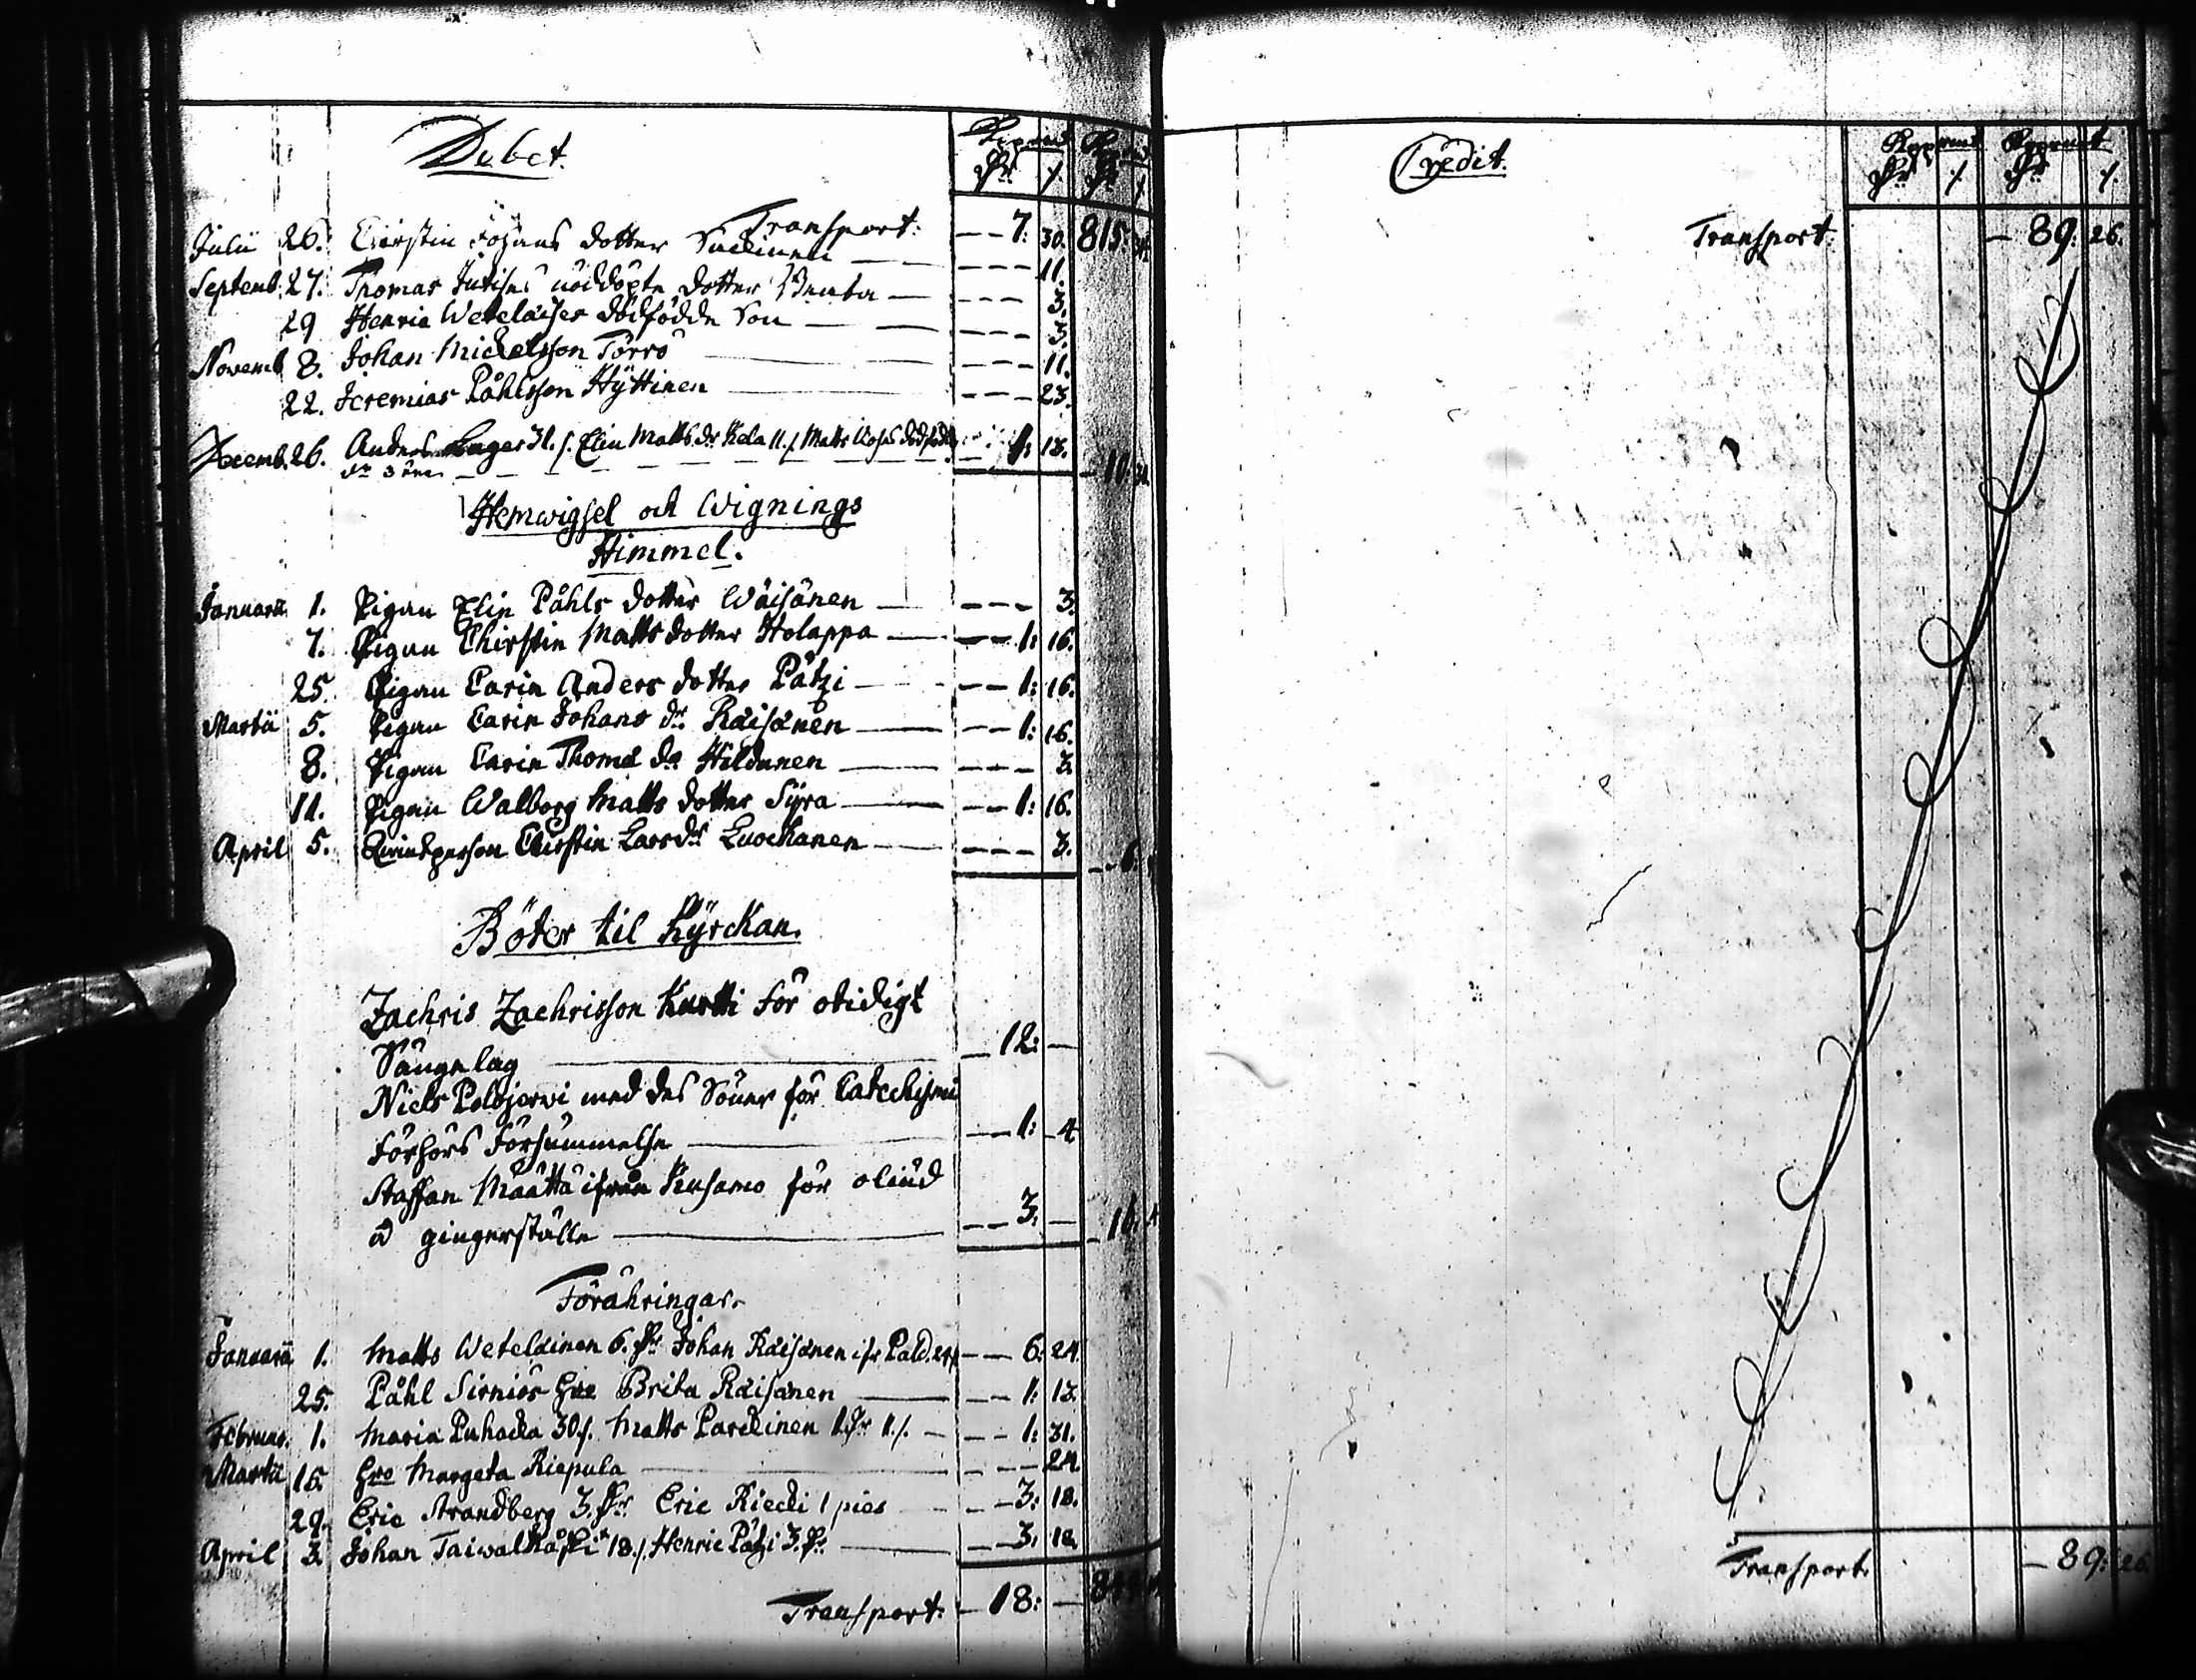 Debet.
Transport: — — 7: 30. 815:
Julii 26. Chirstin Johans dotter
Septemb. 27. Thomas dotter — — — — 11.
29 Henric Wetelaises dödfödde Son — — — — 3.
3.
Novemb. 8. Johan Mickelsson Törrö — — — 11.
22. Jeremias Påhlsson Hyttinen — — — 23.
Decemb. 26. Anders 31./. Elin Matts dr Kela 11./. Matts dödfödde 1: 13.
dr 3 öre — — — 10:
Hemwigsel och Wignings
Himmel.
Januarii 1. Pigan Elin Påhls dotter Wäisänen — — — — 3.
7. Pigan Chirstin Matts dotter Holappa — — — 1: 16.
25. Pigan Carin Anders dotter Pätzi — — — 1: 16.
Martii 5. Pigan Carin Johans dr Räisänen — — — 1: 16.
8. Pigan Carin Thomæ dr — — — — 3.
11. Pigan Walborg Matts dotter Syra — — — 1: 16.
April 5. Qwindperson Chirstin Lars dr Luockanen — — — — 3. — — 6:
Böter til Kyrckan.
Zachris Zachrisson Kurtti för otidigt
Sängelag — — 12: —
Niels Polojerwi med des Söner för Catechismi
förhörs försummelse — — — 1: 4
Staffan Määttä ifrån Kusamo för oliud
å gingerställe — — — 3: — — 16: 4
Förähringar.
Januarii 1. Matts Wetelainen 6. Dr Johan Räisänen — — 6: 24.
25. Påhl Sirniös Brita Räisänen — — — 1: 13.
Februar. 1. Maria Puhacka 30./. Matts Parckinen 1 Dr 1./. — — — 1: 31.
Martii 15. Margeta Riepula — — — — 24
29. Eric Strandberg 3. Dr Eric Riecki 1 pies — — 3: 18.
April 3. Johan Taiwalkåski 18./. Henric Pätzi 3. Dr — — 3: 18.
Transport: — 18: —
Credit.
Transport: — 89: 26.
Transport. — 89: 26